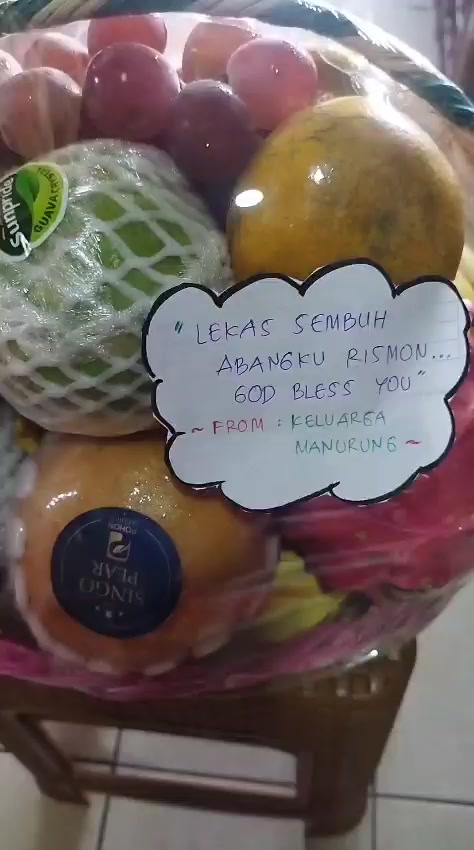 Sunpride
GUAVA CRYSTAL
"LEKAS SEMBUH
ABANGKU RISMON...
GOD BLESS YOU"
~ FROM : KELUARGA
MANURUNG ~
SINGO
PEAR